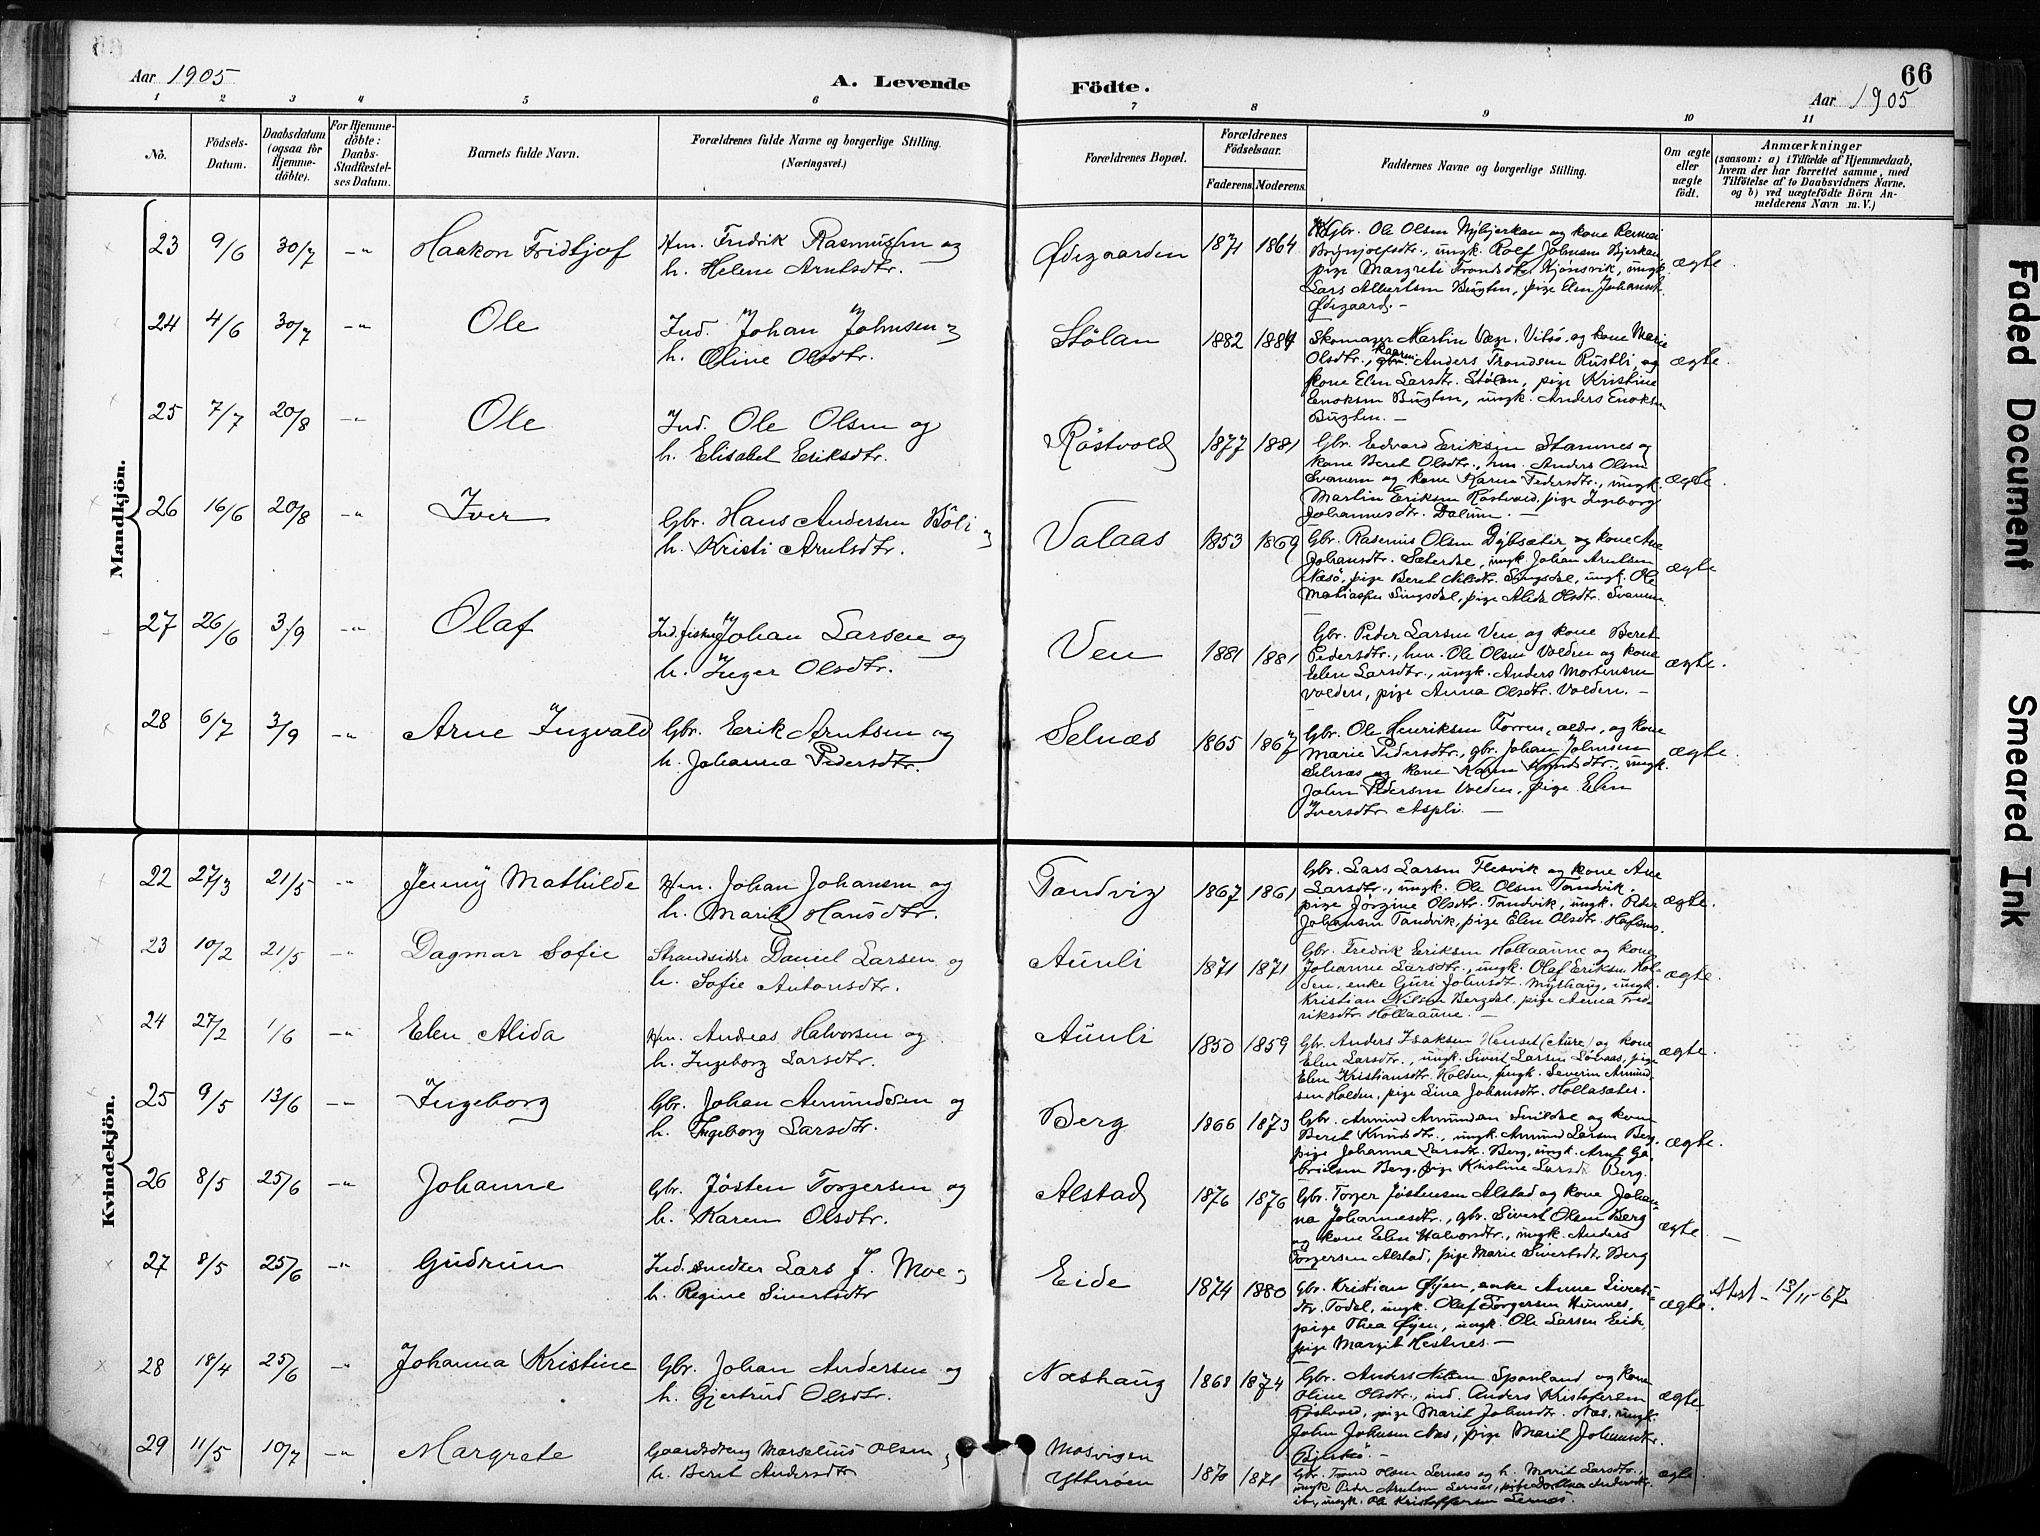 66
Aar 1905
A. Levende
Födte.
Aar 1905
1 2 3 4 5 6 7 8 9 10 11
No.
Födsels-
Datum.
Daabsdatum
(ogsaa for
Hjemme-
döbte).
For Hjemme-
döbte:
Daabs-
Stadfæstel-
ses Datum.
Barnets fulde Navn.
Forældrenes fulde Navne og borgerlige Stilling.
(Næringsvei.)
Forældrenes Bopæl.
Forældrenes
Födselsaar.
Faderens.
Moderens.
Faddernes Navne og borgerlige Stilling.
Om ægte
eller
uægte
födt.
Anmærkninger
(saasom: a) i Tilfælde af Hjemmedaab,
hvem der har forrettet samme, med
Tilföielse af to Daabsvidners Navne,
og b) ved uægtefödte Börn An-
melderens Navn m. V.)
Mandkjön.
23 9/6 30/7 -"- Haakon Fridtjof
Hm. Fredrik Rasmussen og
h. Helene Arntsdtr.
Ødegaarden 1871 1864
Gbr. Ole Olsen Nybjerkan og kone
ungk. Rolf Johnsen Bjerkan,
pige Margreti Trondsdtr. Kjönsvik, ungk.
Lars Albertsen Bugten, pige Elen Johansdt.
Ødegaard. -
ægte.
24 4/6 30/7 -"- Ole
Ind. Johan Johnsen og
h. Oline Olsdtr.
Stölan 1882 1884
Skomager Martin Vitsö, og kone Marie
Olsdtr., Anders Trondsen Rustli, og
kone Elen Larsdtr. Stölan, pige Kristine
Enoksen Bugten, ungk. Anders Enoksen
Bugten. -
ægte.
25 7/7 20/8 -"- Ole
Ind. Ole Olsen og
h. Elisabet Eriksdtr.
Röstvold 1877 1881
Gbr. Edvard Eriksen Stamnes og
kone Beret Olsdtr., hm. Anders Olsen
Svanem og kone Karen Pedersdtr., ungk.
Martin Eriksen Röstvold, pige Ingeborg
Johannesdtr. Dalum. -
ægte.
26 16/6 20/8 -"- Iver
Gbr. Hans Andersen Böli og
h. Kristi Arntsdtr.
Valaas 1853 1869
Gbr. Rasmus Olsen og kone Ane
Johansdtr. Sæterdal, ungk. Johan Arntsen
Næsö, pige Beret Nilsdtr. Singsdal, ungk. Ole
Mathiassen Singsdal, pige Alida Olsdtr. Svanem.
ægte
27 26/6 3/9 -"- Olaf
Ind. fisker Johan Larsen og
h. Inger Olsdtr.
Ven 1881 1881
Gbr. Peder Larsen Ven og kone Beret
Pedersdtr., hm. Ole Olsen Volden og kone
Elen Larsdtr., ungk. Anders Mortensen
Volden, pige Anna Olsdtr. Volden. -
ægte.
28 6/7 3/9 -"- Arne Ingvald
Gbr. Erik Arntsen og
h. Johanna Pedersdtr.
Selnæs 1865 1867
Gbr. Ole Henriksen Forren, ældr., og kone
Marie Pedersdtr., gbr. Johan Johnsen
Selnæs og kone Karen Knudsdtr., ungk.
John Pedersen Volden, pige Elen
Iversdtr. Aspli. -
ægte.
Kvindekjön.
22 27/3 21/5 -"- Jenny Mathilde
Hm. Johan Johansen og
h. Marit Hansdtr.
Tandvig 1867 1861
Gbr. Lars Larsen Flesvik og kone Ane
Larsdtr., ungk. Ole Olsen Tandvik,
pige Jörgine Olsdtr. Tandvik, ungk. Peder
Johansen Tandvik, pige Elen Olsdtr. Hafsmo.
ægte.
23 10/2 21/5 -"- Dagmar Sofie
Strandsidder Daniel Larsen og
h. Sofie Antonsdtr.
Aunli 1871 1871
Gbr. Fredrik Eriksen Hollaaune og kone
Johanne Larsdtr., ungk. Olaf Eriksen Hol-
den, enke Guri Johnsdt. Myrhaug, ungk.
Kristian Nilsen Bergdal, pige Anna Fred-
riksdtr. Hollaaune. -
ægte.
24 27/2 1/6 -"- Elen Alida
Hm. Andreas Halvorsen og
h. Ingeborg Larsdtr.
Aunli 1850 1859
Gbr. Anders Isaksen Henset (Aure) og kone
Elen Larsdtr., ungk. Sivert Larsen Lövaas, pige
Elen Kristiansdtr. Holden, ungk. Severin Amund-
sen Holden, pige Lina Johansdtr. Hollasæter.
ægte.
25 9/5 13/6 -"- Ingeborg
Gbr. Johan Amundsen og
h. Ingeborg Larsdtr.
Berg 1866 1873
Gbr. Amund Amundsen Snildal og kone
Beret Knudsdtr., ungk. Amund Larsen Berg,
pige Johanna Larsdtr. Berg, ungk. Arnt Ga-
brielsen Berg, pige Kristine Larsd. Berg.
ægte.
26 8/5 25/6 -"- Johanne
Gbr. Jösten Torgersen og
h. Karen Olsdtr.
Alstad 1876 1876
Gbr. Torger Jöstensen Alstad og kone Johan-
na Johannesdtr., gbr. Sivert Olsen Berg
og kone Elen Halvorsdtr., ungk. Anders
Torgersen Alstad, pige Marie Sivertsdtr. Berg
ægte. -
27 8/5 25/6 -"- Gudrun
Ind. snedker Lars J. Moe og
h. Regine Sivertsdtr
Eide 1874 1880
Gbr. Kristian Øyen, enke Anne Siverts-
dtr. Todal, ungk. Olaf Torgersen Hunnes,
pige Thea Øyen, ungk. Ole Larsen Eide,
pige Margit Hestnes. -
ægte.
Attst - 13/11-67
28 18/4 25/6 -"- Johanna Kristine
Gbr. Johan Andersen og
h. Gjertrud Olsdtr.
Næshaug 1868 1874
Gbr. Anders Nilsen Spanland og kone
Oline Olsdtr., ind. Anders Kristofersen
Röstvold, pige Marit Johnsdtr. Næs, ungk.
John Johnsen Næs, pige Marit Johansdtr.
ægte.
29 11/5 10/7 -"- Margrete
Gaardsdreng Marselius Olsen og
h. Beret Andersdtr
Mosvigen
Ytteröen 1870 1871
Gbr. Tond Olsen Lernæs og h. Marit Larsdtr.,
ungk. Peder Arntsen Lernæs, pige
ungk. Ole Kristoffersen Lernæs.
ægte.
Faded Document
Smeared Ink